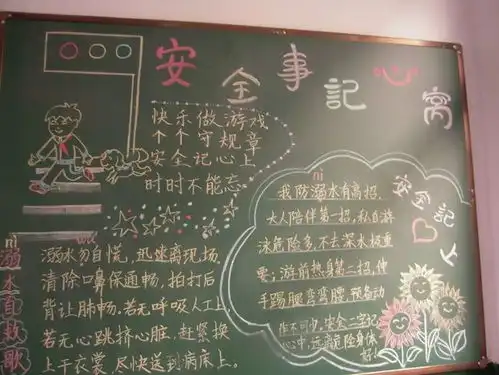 安全事記心窩
快乐做游戏
个个守规章
安全记心上
时时不能忘
ni
溺水自救歌
溺水勿自慌，迅速离现场。
清除口鼻保通畅，拍打后
背让肺畅。若无呼吸人工上，
若无心跳挤心脏。赶紧换
上干衣裳，尽快送到病床上。
ni
我防溺水有高招，
大人陪伴第一招，私自游
泳危险多，不去深水极重
要；游前热身第二招，伸
手踢腿弯弯腰，预备动
作不可少，安全二字记
心中，远离危险身体
好！
安全記心上